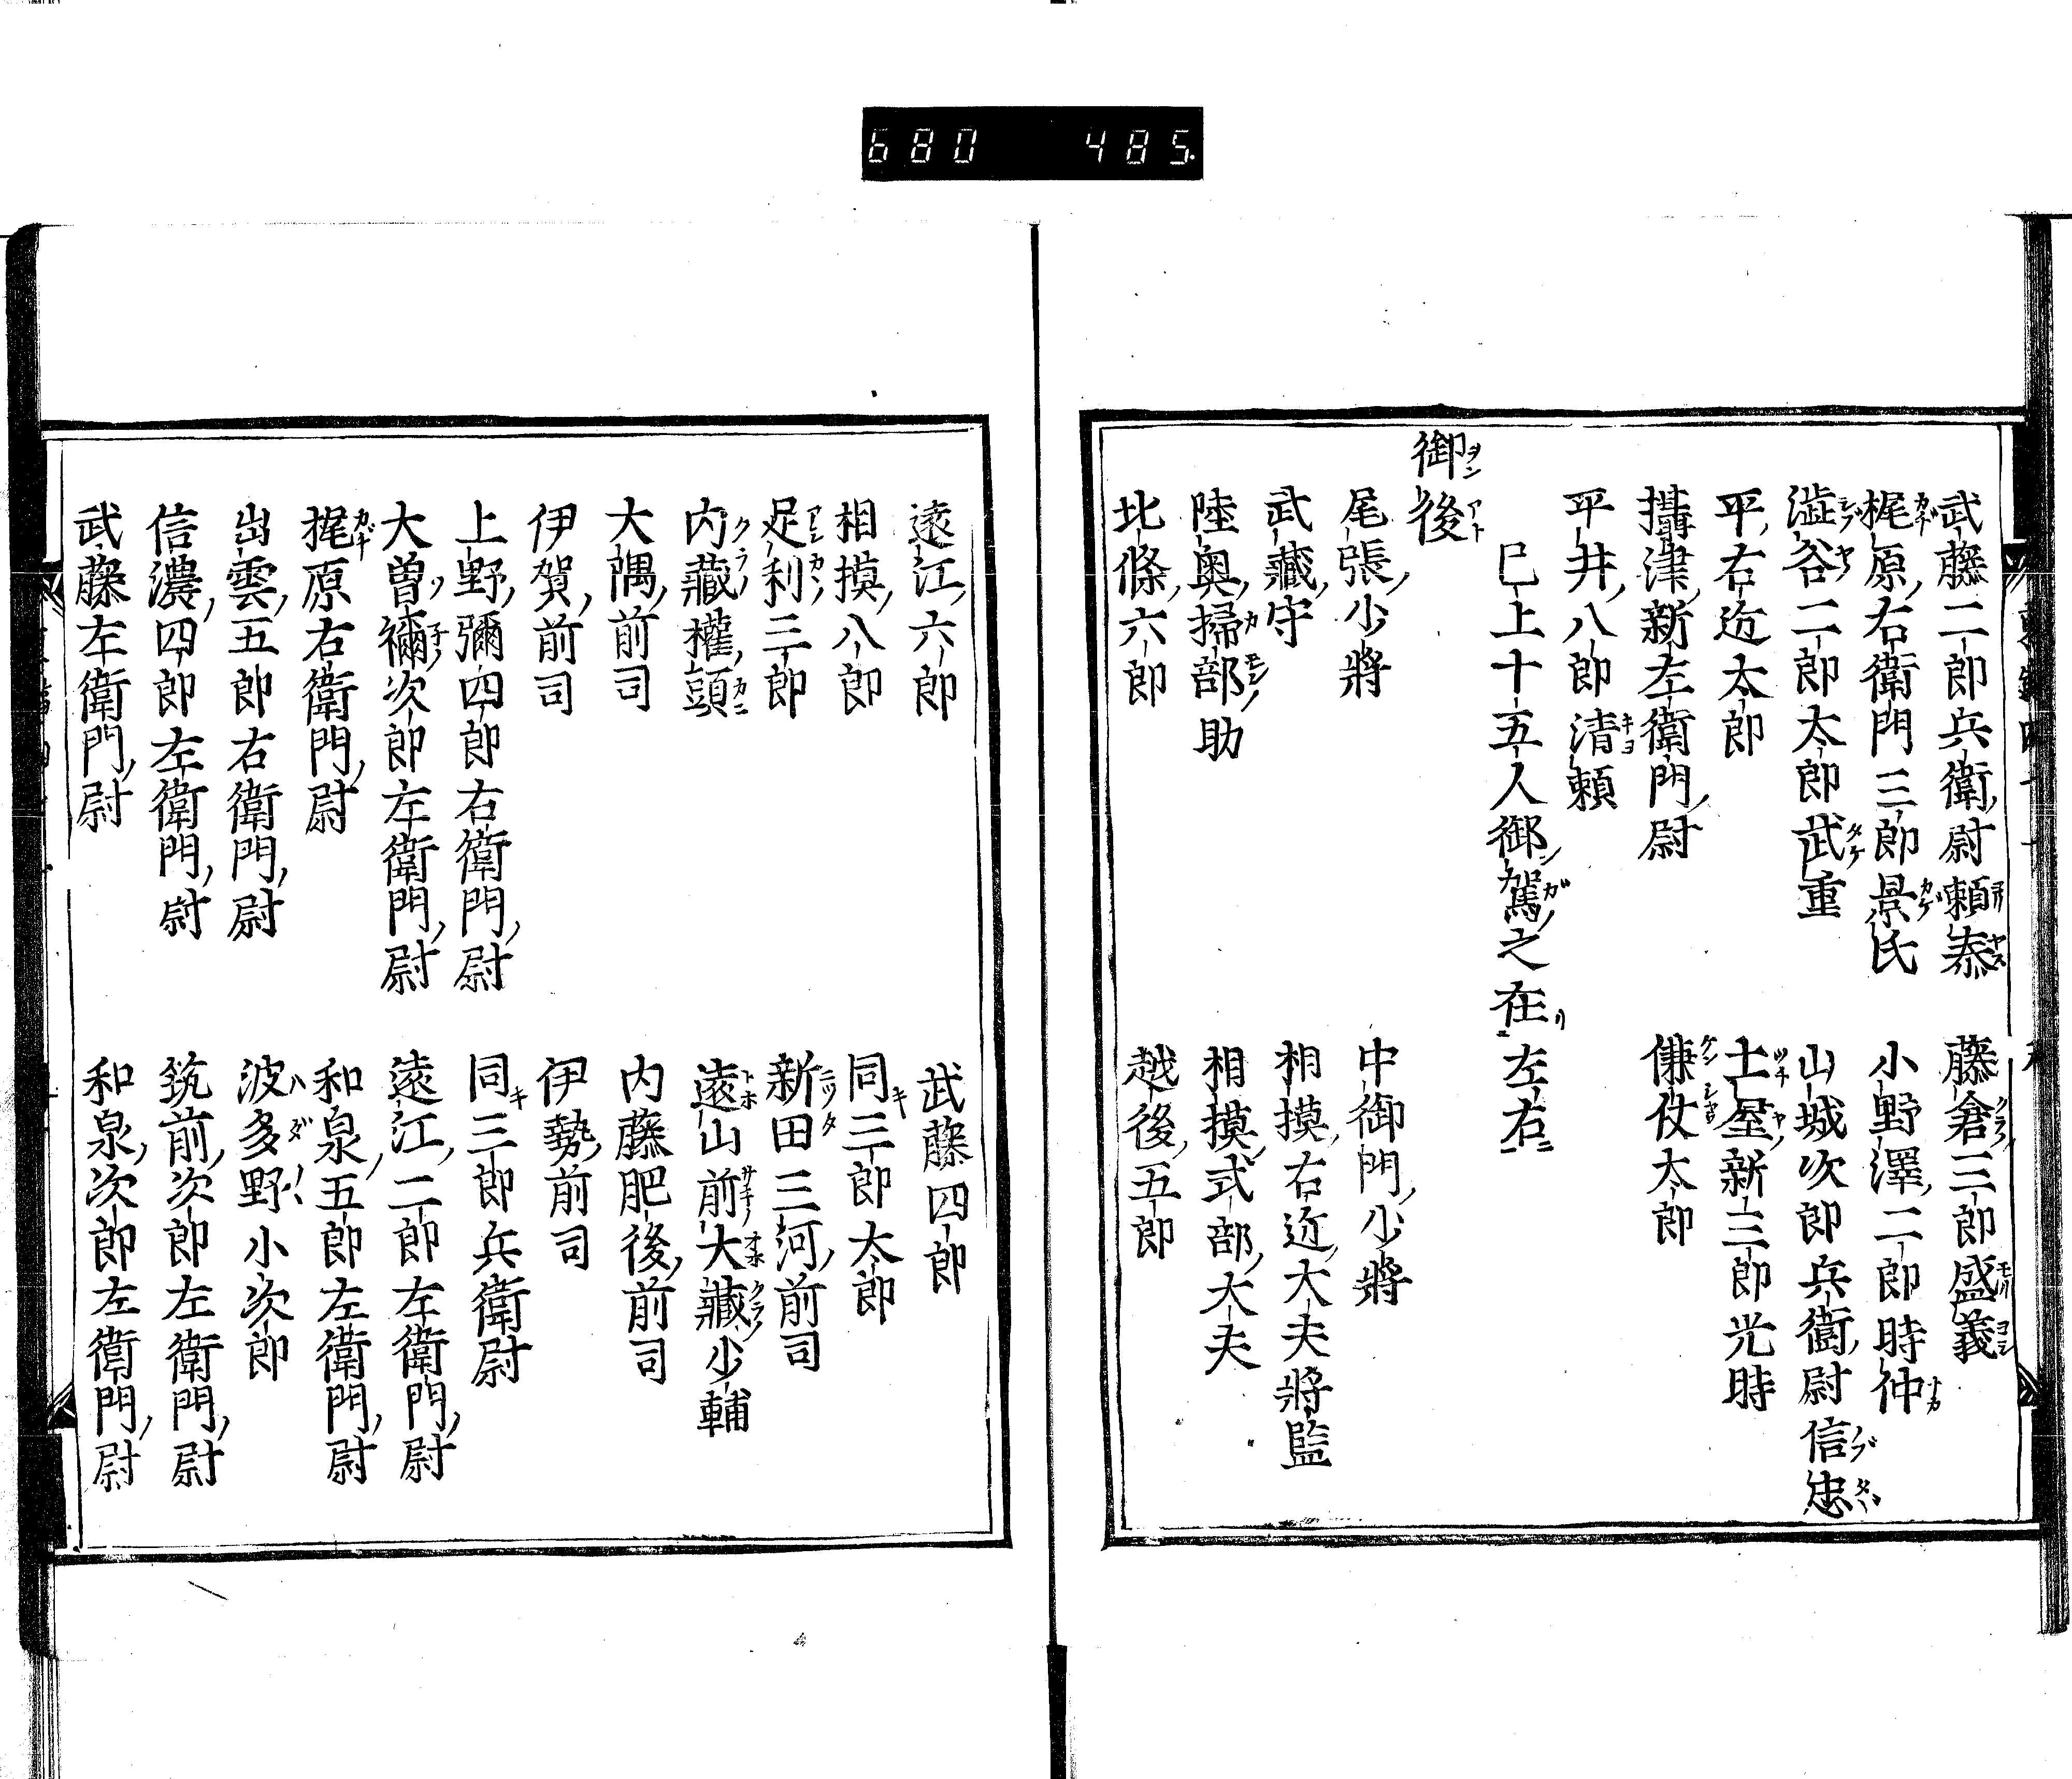 680 485.
武藤二郎兵衛尉頼泰 藤倉三郎盛義
梶原右衛門三郎景氏 小野澤二郎時仲
澁谷二郎太郎武重 山城次郎兵衛尉信忠
平右近太郎 土屋新三郎光時
攝津新左衛門尉 傔仗太郎
平井八郎清頼
巳上十五人御駕之在左右
御後
尾張少將 中御門少將
武藏守 相摸右近大夫將監
陸奥掃部助 相摸式部大夫
北條六郎 越後五郎
遠江六郎 武藤四郎
相摸八郎 同三郎太郎
足利三郎 新田三河前司
内藏權頭 遠山前大藏少輔
大隅前司 内藤肥後前司
伊賀前司 伊勢前司
上野彌四郎右衛門尉 同三郎兵衛尉
大曽禰次郎左衛門尉 遠江二郎左衛門尉
梶原右衛門尉 和泉五郎左衛門尉
出雲五郎右衛門尉 波多野小次郎
信濃四郎左衛門尉 筑前次郎左衛門尉
武藤左衛門尉 和泉次郎左衛門尉